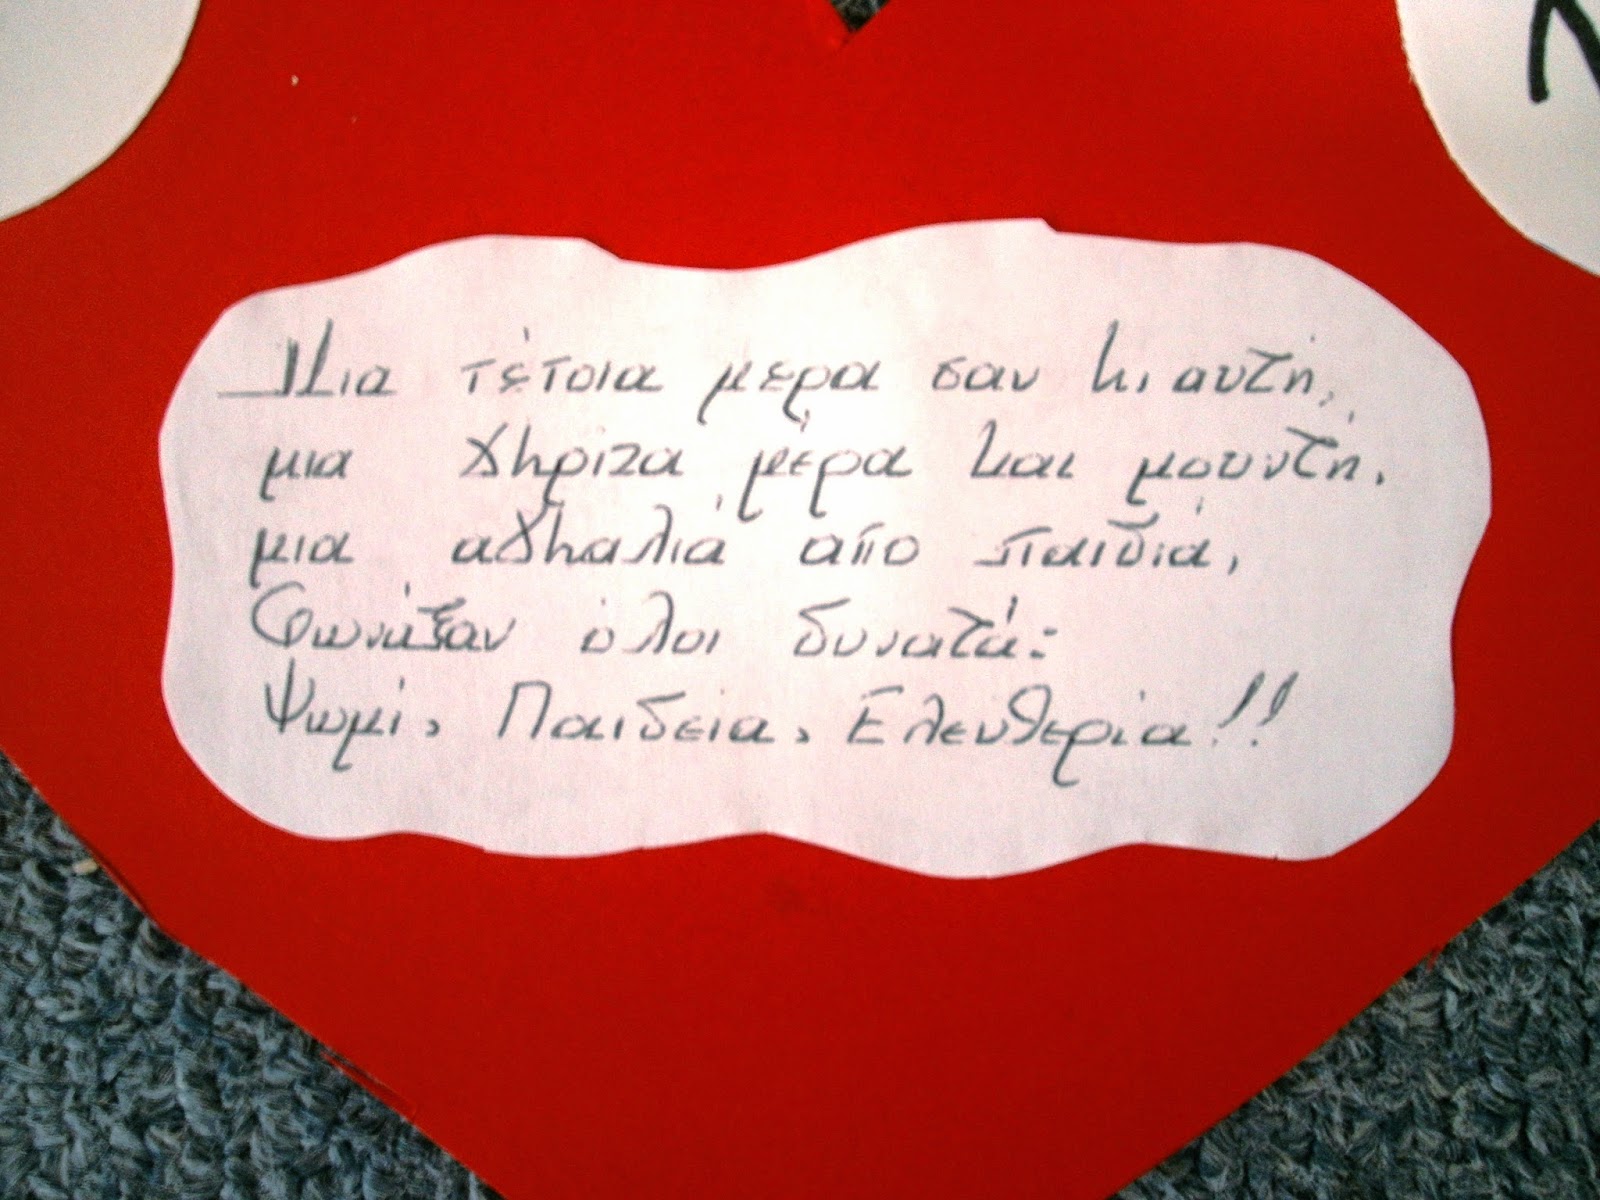 Μια τέτοια μερα σαν κι αυτή,
μια γκρίζα μέρα και μουντή,
μια αγκαλιά απο παιδιά,
Φωνάξαν όλοι δυνατά:
Ψωμί, Παιδεία, Ελευθερία!!